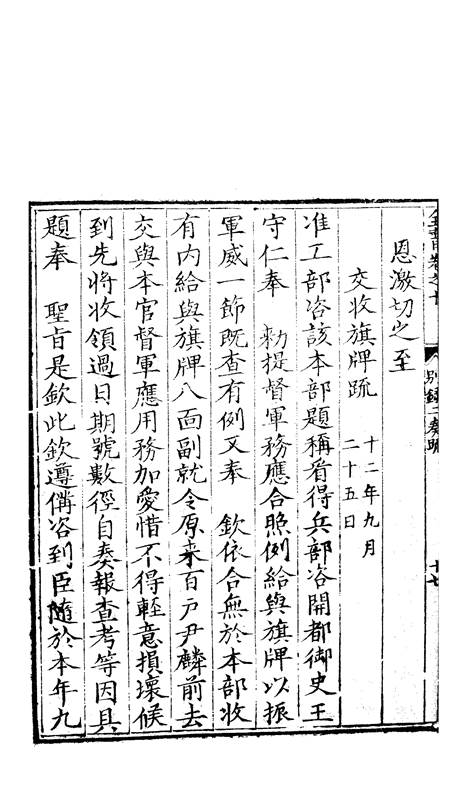 全書卷之十　別錄二 奏疏　十七
恩激切之至
交收旗牌疏 十二年九月二十五日
准工部咨該本部題稱看得兵部咨開都御史王
守仁奉　勑提督軍務應合照例給與旗牌以振
軍威一節旣查有例又奉　欽依合無於本部收
有内給與旗牌八面副就令原来百戶尹麟前去
交與本官督軍應用務加愛惜不得輕意損壞候
到先將收領過日期號數徑自奏報查考等因具
題奉　聖旨是欽此欽遵備咨到臣隨於本年九